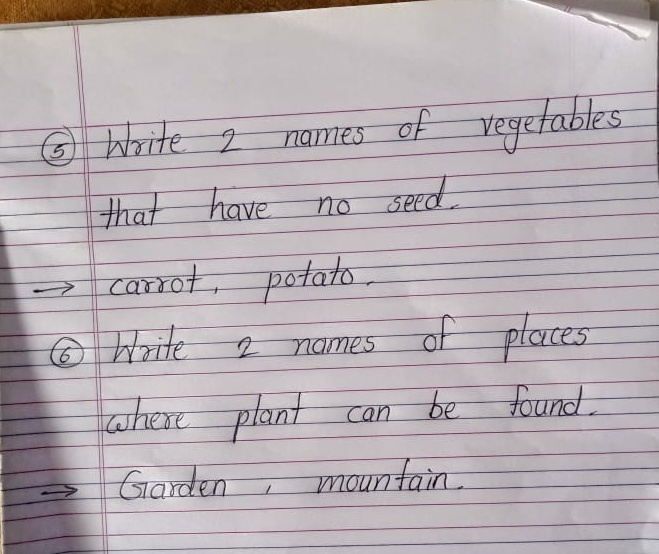 ⑤ Write 2 names of vegetables
that have no seed.
→ carrot, potato.
⑥ Write 2 names of places
where plant can be found.
→ Garden , mountain.